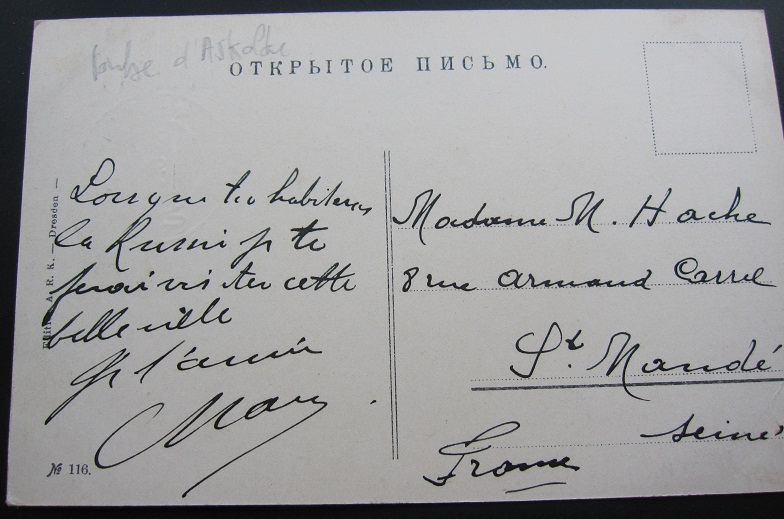 d'Askold
ОТКРЫТОЕ ПИСЬМО.
Lorsque tu habiteras
la Russie je te
ferai visiter cette
belle ville
Je t'
Edition A. R. K. — Dresden —
№ 116.
Madame M. Hache
8 rue Armand Carrel
St. Mandé
Seine
France